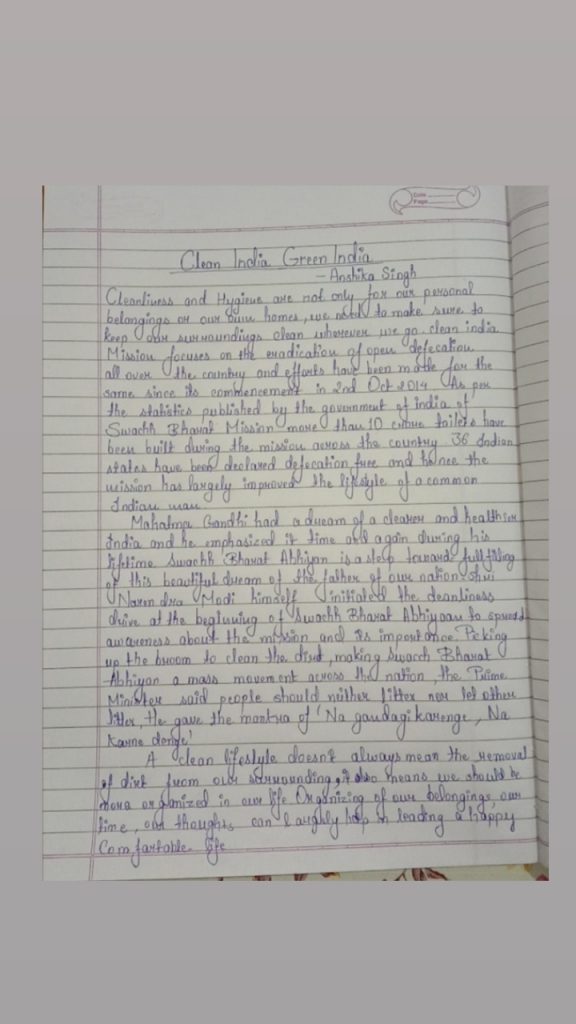 Date
Page
Clean India Green India
- Anshika Singh
Cleanliness and Hygiene are not only for our personal
belongings or our own homes, we need to make sure to
keep our surroundings clean wherever we go. clean india
Mission focuses on the eradication of open defecation
all over the country and efforts have been made for the
same since its commencement in 2nd Oct 2014. As per
the statistics published by the government of india of
Swachh Bharat Mission more than 10 crore toilets have
been built during the mission across the country. 36 Indian
states have been declared defecation free and hence the
mission has largely improved the lifestyle of a common
Indian man.
Mahatma Gandhi had a dream of a cleaner and healthier
India and he emphasized it time and again during his
lifetime Swachh Bharat Abhiyan is a step toward fullfilling
of this beautiful dream of the father of our nation shri
Narendra Modi himself initiated the cleanliness
drive at the beginning of Swachh Bharat Abhiyaan to spread
awareness about the mission and its importance. Picking
up the broom to clean the dirt, making Swacch Bharat
Abhiyan a mass movement across the nation, the Prime
Minister said people should neither litter nor let other
litter, He gave the mantra of 'Na gandagi karenge, Na
Karne denge'
A clean lifestyle doesn't always mean the removal
of dirt from our surrounding, it also means we should be
more organized in our life. Organizing of our belongings, our
time, our thoughts can help in leading a happy
Comfortable life